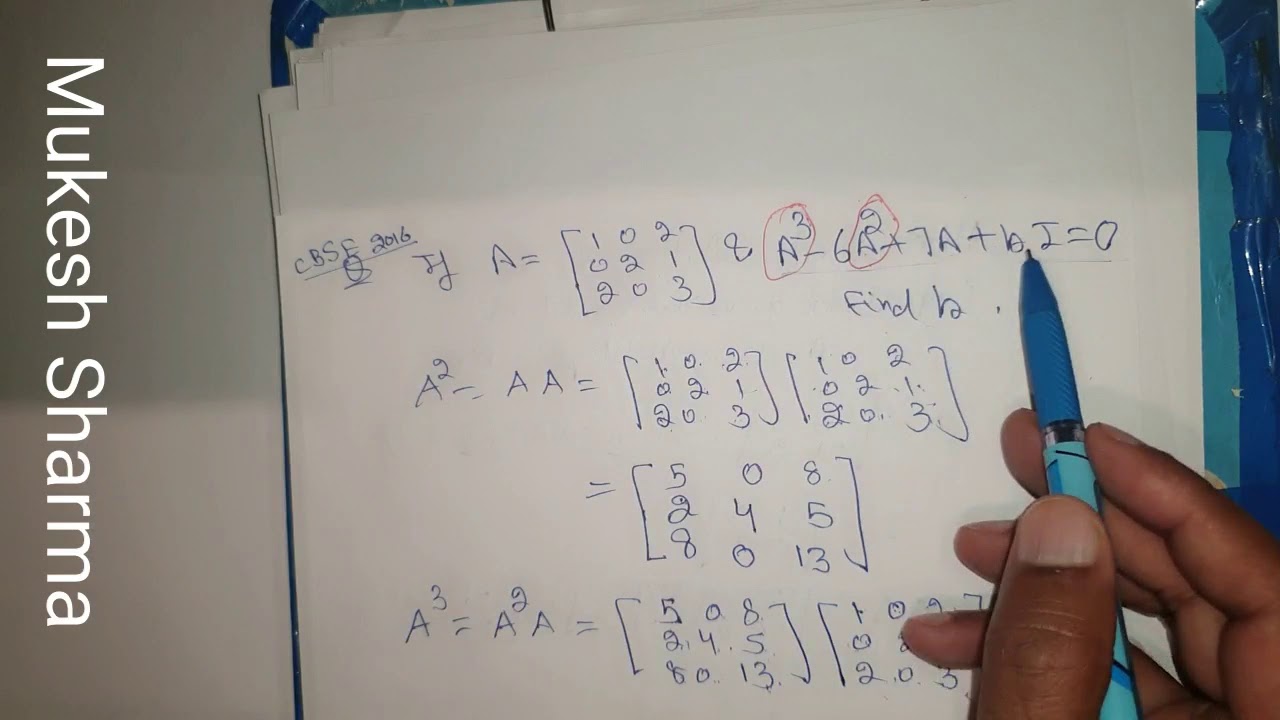 Mukesh Sharma
CBSE 2016
Q If A = [1 0 2 0 2 1 2 0 3] & A³ - 6A² + 7A + kI = 0
Find k .
A² = A A = [1 0 2 0 2 1 2 0 3] [1 0 2 0 2 1 2 0 3]
= [5 0 8 2 4 5 8 0 13]
A³ = A² A = [5 0 8 2 4 5 8 0 13] [1 0 2 0 2 0 3